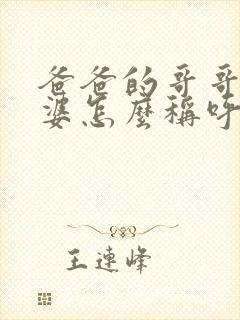 爸爸的哥哥
婆怎麼稱呼
王連峰